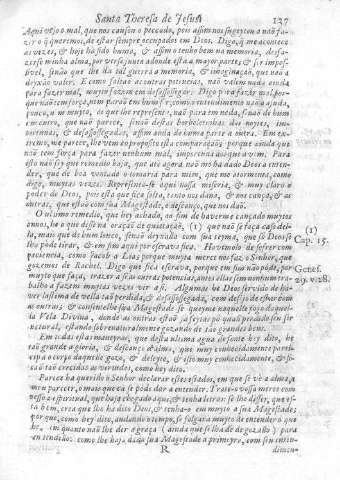 Santa Theresa de Jesus 137
Aqui vejo o mal, que nos causou o peccado, pois assim nos sugeytou a naõ fa-
zer o q̃ queremos, de estar sempre occupados em Deos. Digo, q̃ me acontece
as vezes, & hoje ha sido huma, & assim o tenho bem na memoria, desfa-
zerse minha alma, por verse junta adonde està a mayor parte; & ser impos-
sivel, senão que lhe dà tal guerra a memoria, & imaginação, que naõ a
deyxaõ valer. E como faltaõ as outras potencias, naõ valem nada ainda
para fazer mal, muyto fazem em desassossegar: Digo para fazer mal, por-
que naõ tem força, nem paraõ em hum ser; como o entendimento naõ a ajuda,
pouco, nem muyto, do que lhe representa, naõ pàra em nada, senaõ de hum
em outro, que naõ parece, senaõ destas borboletinhas das noytes, im-
portunas, & desassossegadas, assim anda de huma parte a outra. Em ex-
tremo, me parece, lhe vem ao proprio esta comparaçaõ; porque ainda que
naõ tem força para fazer nenhum mal, importuna aos que a vem. Para
isto naõ sey que remedio haja, que atè agora naõ mo ha dado Deos a enten-
der, que de boa vontade o tomaria para mim, que me atormenta, como
digo, muytas vezes. Representa-se aqui nossa miseria, & muy claro o
poder de Deos, pois esta que fica solta, tanto nos dana, & nos cança, & as
outras, que estaõ com sua Magestade, o descanço, que nos daõ.
O ultimo remedio, que hey achado, ao fim de haverme cançado muytos
annos, he o que disse na oraçaõ de quietaçaõ, (1) que naõ se faça caso del-
la, mais que de hum louco, senaõ deyxala com sua teyma, que sò Deos se
lha pòde tirar, & em fim aqui por escrava fica. Havemolo de sofrer com
paciencia, como Jacob a Lia; porque muyta merce nos faz o Senhor, que
gozemos de Rachel. Digo que fica escrava, porque em fim naõ pòde, por
muyto que faça, trazer a si as outras potencias, antes ellas sem nenhum tra-
balho a fazem muytas vezes vir a si. Algumas he Deos servido de ha-
ver lastima de vella taõ perdida, & desassossegada, com desejo de estar com
as outras; & consente lhe sua Magestade se queyme naquelle fogo daquel-
la Vela Divina, donde as outras estaõ jà feytas pò quasi perdido seu ser
natural, estando sobrenaturalmente gozando de taõ grandes bens.
Em todas estas maneyras, que desta ultima agua da fonte hey dito, he
taõ grande a gloria, & descanço da alma, que muy conhecidamente parti-
cipa o corpo daquelle gozo, & deleyte, & isto muy conhecidamente, & fi-
caõ taõ crecidas as virtudes, como hey dito.
Parece ha querido o Senhor declarar estes estados, em que se vè a alma, a
meu parecer, o mais que cà se pòde dar a entender. Trate-o vossa merce com
pessoa espiritual, que haja chegado aqui, & tenha letras: se lhe disser, que es-
tà bem, crea que lho ha dito Deos, & tenha-o em muyto a sua Magestade;
porque, como hey dito, andando o tempo, se folgara muyto de entender o que
he, em quanto naõ lhe der a graça (ainda que se lha dè de gozallo) para
entendello: como lhe haja dado sua Magestade a primeyra, com seu enten-
R dimen-
(1)
Cap. 15.
Genes.
29. v. 28.